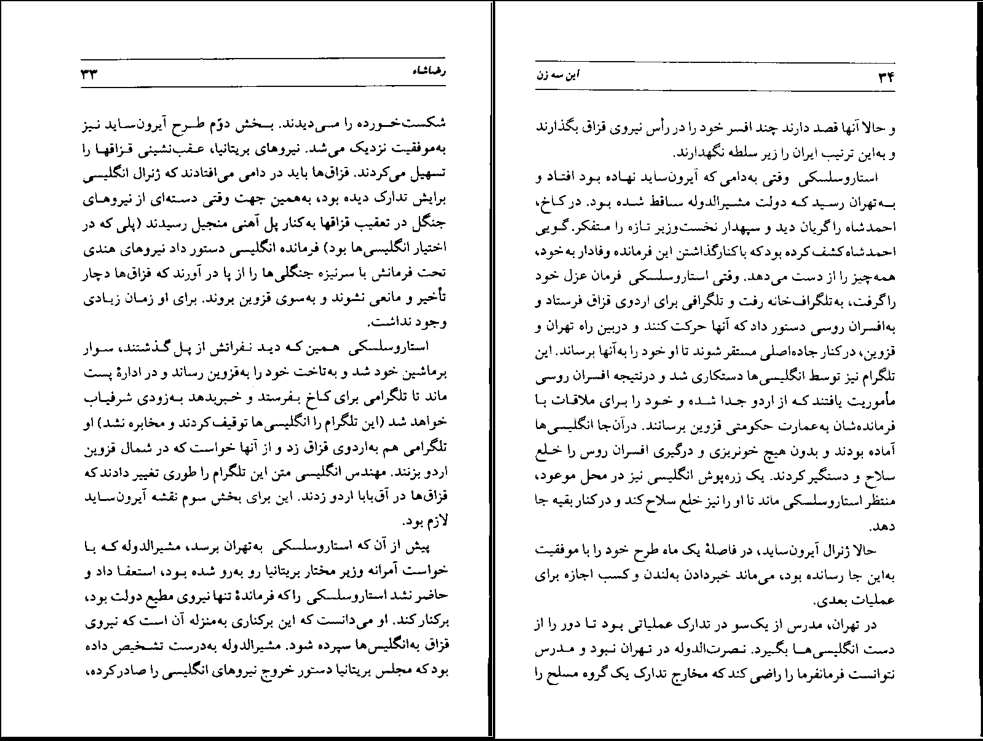 رضاشاه ۳۳
شکست‌خورده را می‌دیدند. بخش دوّم طرح آیرون‌ساید نیز
به‌موفقیت نزدیک می‌شد. نیروهای بریتانیا، عقب‌نشینی قزاقها را
تسهیل می‌کردند. قزاق‌ها باید در دامی می‌افتادند که ژنرال انگلیسی
برایش تدارک دیده بود، به‌همین جهت وقتی دسته‌ای از نیروهای
جنگل در تعقیب قزاقها به‌کنار پل آهنی منجیل رسیدند (پلی که در
اختیار انگلیسی‌ها بود) فرمانده انگلیسی دستور داد نیروهای هندی
تحت فرمانش با سرنیزه جنگلی‌ها را از پا در آورند که قزاق‌ها دچار
تأخیر و مانعی نشوند و به‌سوی قزوین بروند. برای او زمان زیادی
وجود نداشت.
استاروسلسکی همین‌که دید نفراتش از پل گذشتند، سوار
برماشین خود شد و به‌تاخت خود را به‌قزوین رساند و در ادارهٔ پست
ماند تا تلگرامی برای کاخ بفرستد و خبربدهد به‌زودی شرفیاب
خواهد شد (این تلگرام را انگلیسی‌ها توقیف‌کردند و مخابره نشد) او
تلگرامی هم به‌اردوی قزاق زد و از آنها خواست که در شمال قزوین
اردو بزنند. مهندس انگلیسی متن این تلگرام را طوری تغییر دادند که
قزاق‌ها در آق‌بابا اردو زدند. این برای بخش سوم نقشه آیرون‌ساید
لازم بود.
پیش از آن که استاروسلسکی به‌تهران برسد، مشیرالدوله که با
خواست آمرانه وزیر مختار بریتانیا رو به‌رو شده بود، استعفا داد و
حاضر نشد استاروسلسکی را که فرماندهٔ تنها نیروی مطیع دولت بود،
برکنار کند. او می‌دانست که این برکناری به‌منزله آن است که نیروی
قزاق به‌انگلیس‌ها سپرده شود. مشیرالدوله به‌درست تشخیص داده
بود که مجلس بریتانیا دستور خروج نیروهای انگلیسی را صادرکرده،
۳۴ این سه زن
و حالا آنها قصد دارند چند افسر خود را در رأس نیروی قزاق بگذارند
و به‌این ترتیب ایران را زیر سلطه نگهدارند.
استاروسلسکی وقتی به‌دامی که آیرون‌ساید نهاده بود افتاد و
به‌تهران رسید که دولت مشیرالدوله ساقط شده بود. در کاخ،
احمدشاه را گریان دید و سپهدار نخست‌وزیر تازه را متفکر. گویی
احمدشاه کشف کرده بود که با کنارگذاشتن این فرمانده وفادار به‌خود،
همه‌چیز را از دست می‌دهد. وقتی استاروسلسکی فرمان عزل خود
را گرفت، به‌تلگرافخانه رفت و تلگرافی برای اردوی قزاق فرستاد و
به‌افسران روسی دستور داد که آنها حرکت کنند و دربین راه تهران و
قزوین، درکنار جاده‌اصلی مستقر شوند تا او خود را به‌آنها برساند. این
تلگرام نیز توسط انگلیسی‌ها دستکاری شد و درنتیجه افسران روسی
مأموریت یافتند که از اردو جدا شده و خود را برای ملاقات با
فرمانده‌شان به‌عمارت حکومتی قزوین برسانند. درآن‌جا انگلیسی‌ها
آماده بودند و بدون هیچ خونریزی و درگیری افسران روس را خلع
سلاح و دستگیر کردند. یک زره‌پوش انگلیسی نیز در محل موعود،
منتظر استاروسلسکی ماند تا او را نیز خلع سلاح کند و درکنار بقیه جا
دهد.
حالا ژنرال آیرون‌ساید، در فاصلهٔ یک ماه طرح خود را با موفقیت
به‌این جا رسانده بود، می‌ماند خبردادن به‌لندن و کسب اجازه برای
عملیات بعدی.
در تهران، مدرس از یک‌سو در تدارک عملیاتی بود تا دور را از
دست انگلیسی‌ها بگیرد. نصرت‌الدوله در تهران نبود و مدرس
نتوانست فرمانفرما را راضی کند که مخارج تدارک یک گروه مسلح را